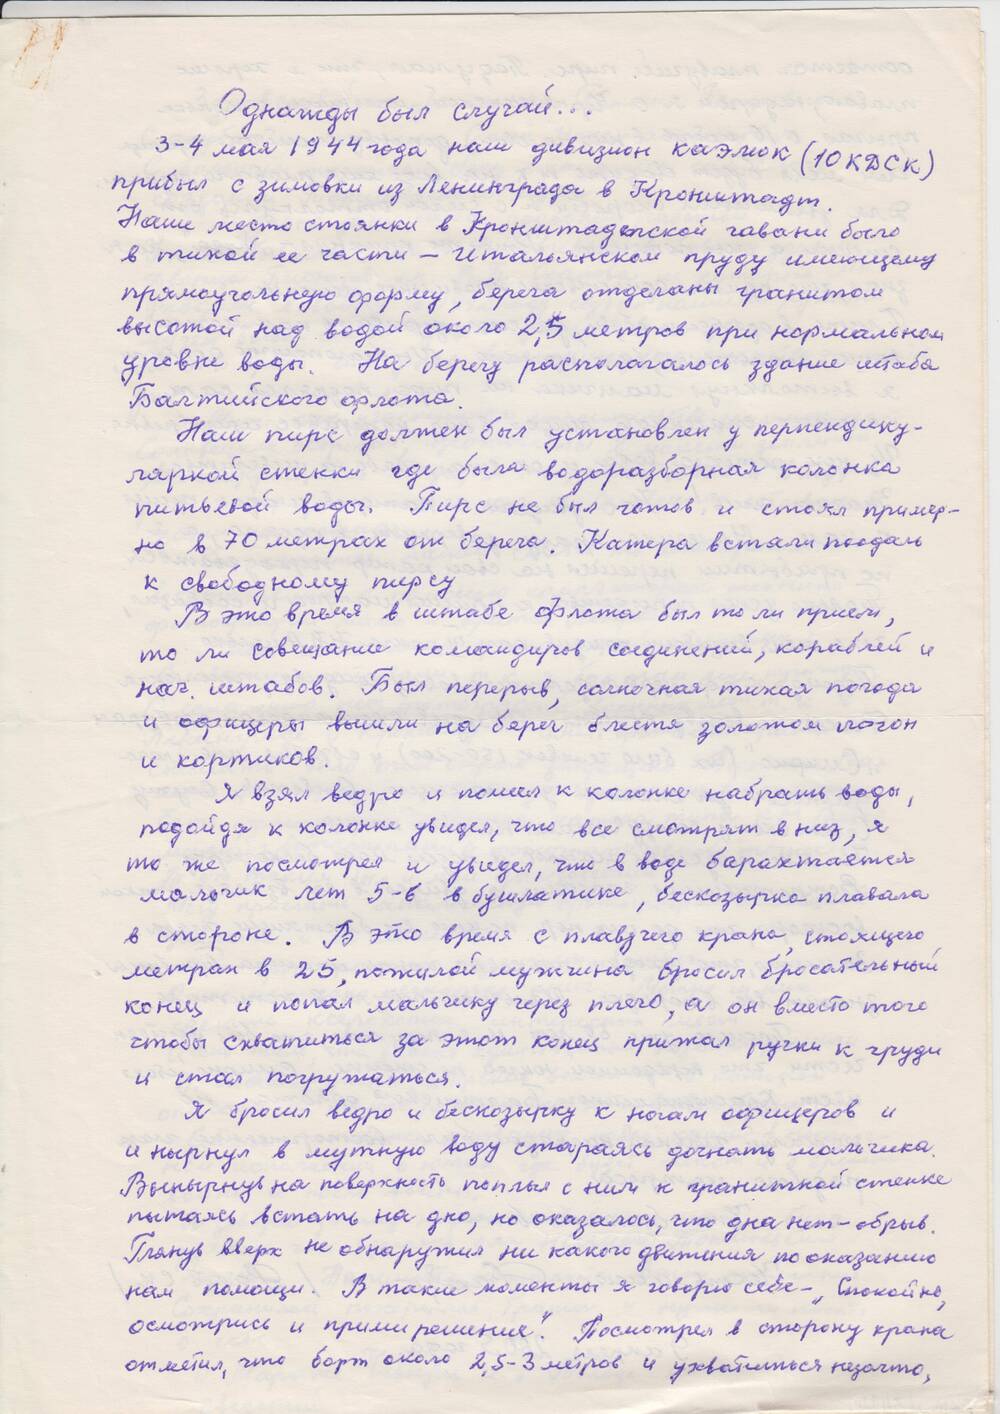 Однажды был случай...
3-4 мая 1944 года наш дивизион каэмок (10 КДСК)
прибыл с зимовки из Ленинграда в Кронштадт.
Наше место стоянки в Кронштадтской гавани было
в тихой ее части – Итальянском пруду имеющему
прямоугольную форму, берега отделаны гранитом
высотой над водой около 2,5 метров при нормальном
уровне воды. На берегу располагалось здание штаба
Балтийского флота.
Наш пирс должен был установлен у перпендику-
лярной стенки где была водоразборная колонка
питьевой воды. Пирс не был готов и стоял пример-
но в 70 метрах от берега. Катера встали поодаль
к свободному пирсу
В это время в штабе флота был то ли прием,
то ли совещание командиров соединений, кораблей и
нач. штабов. Был перерыв, солнечная тихая погода
и офицеры вышли на берег блестя золотом погон
и кортиков.
Я взял ведро и пошел к колонке набрать воды,
подойдя к колонке увидел, что все смотрят в низ, я
то же посмотрел и увидел, что в воде барахтается
мальчик лет 5-6 в бушлатике, бескозырка плавала
в стороне. В это время с плавучего крана, стоящего
метрах в 25, пожилой мужчина бросил бросательный
конец и попал мальчику через плечо, а он вместо того
чтобы схватиться за этот конец прижал ручки к груди
и стал погружаться.
Я бросил ведро и бескозырку к ногам офицеров и
и нырнул в мутную воду стараясь догнать мальчика.
Вынырнув на поверхность поплыл с ним к гранитной стенке
пытаясь встать на дно, но оказалось, что дна нет – обрыв.
Глянув вверх не обнаружил ни какого движения по оказанию
нам помощи. В такие моменты я говорю себе – „Спокойно,
осмотрись и прими решение“. Посмотрел в сторону крана
отметил, что борт около 2,5-3 метров и ухватиться незачто,